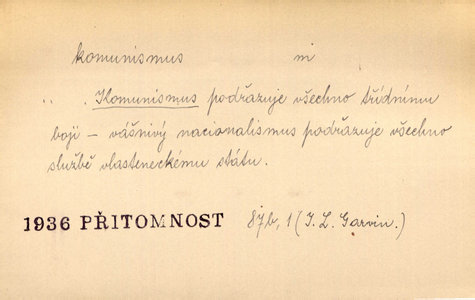 komunismus m
.. . Komunismus podřazuje všechno třídnímu
boji – vášnivý nacionalismus podřazuje všechno
službě vlasteneckému státu.
1936 PŘITOMNOST 87b, 1 (J. L. Garvin.)